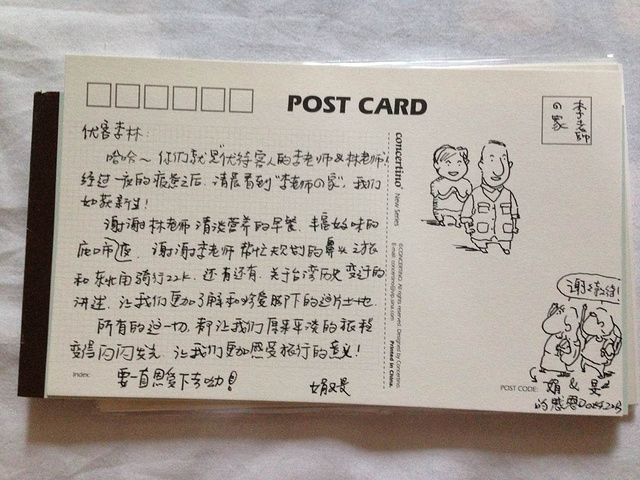 POST CARD
李老師
の家
优客李林:
哈哈~ 你们就是优待客人的李老师&林老师!
经过一夜的疲惫之后, 清晨看到"李老师の家", 我们
如获新生!
谢谢林老师清淡营养的早餐, 丰富好味的
谢谢李老师帮忙规划的鼻头之旅
和东北角骑行22k, 还有还有, 关于台湾历史变迁的
讲述, 让我们更加了解和珍爱脚下的这片土地.
所有的这一切, 都让我们原来平淡的旅程
变得闪闪发光, 让我们更加感受旅行的意义!
要一直恩爱下去呦!
concertino
New Series
©CONCERTINO. All rights reserved. Designed by Concertino.
Printed in China.
Index:
谢谢款待!
POST CODE:
娟 & 旻